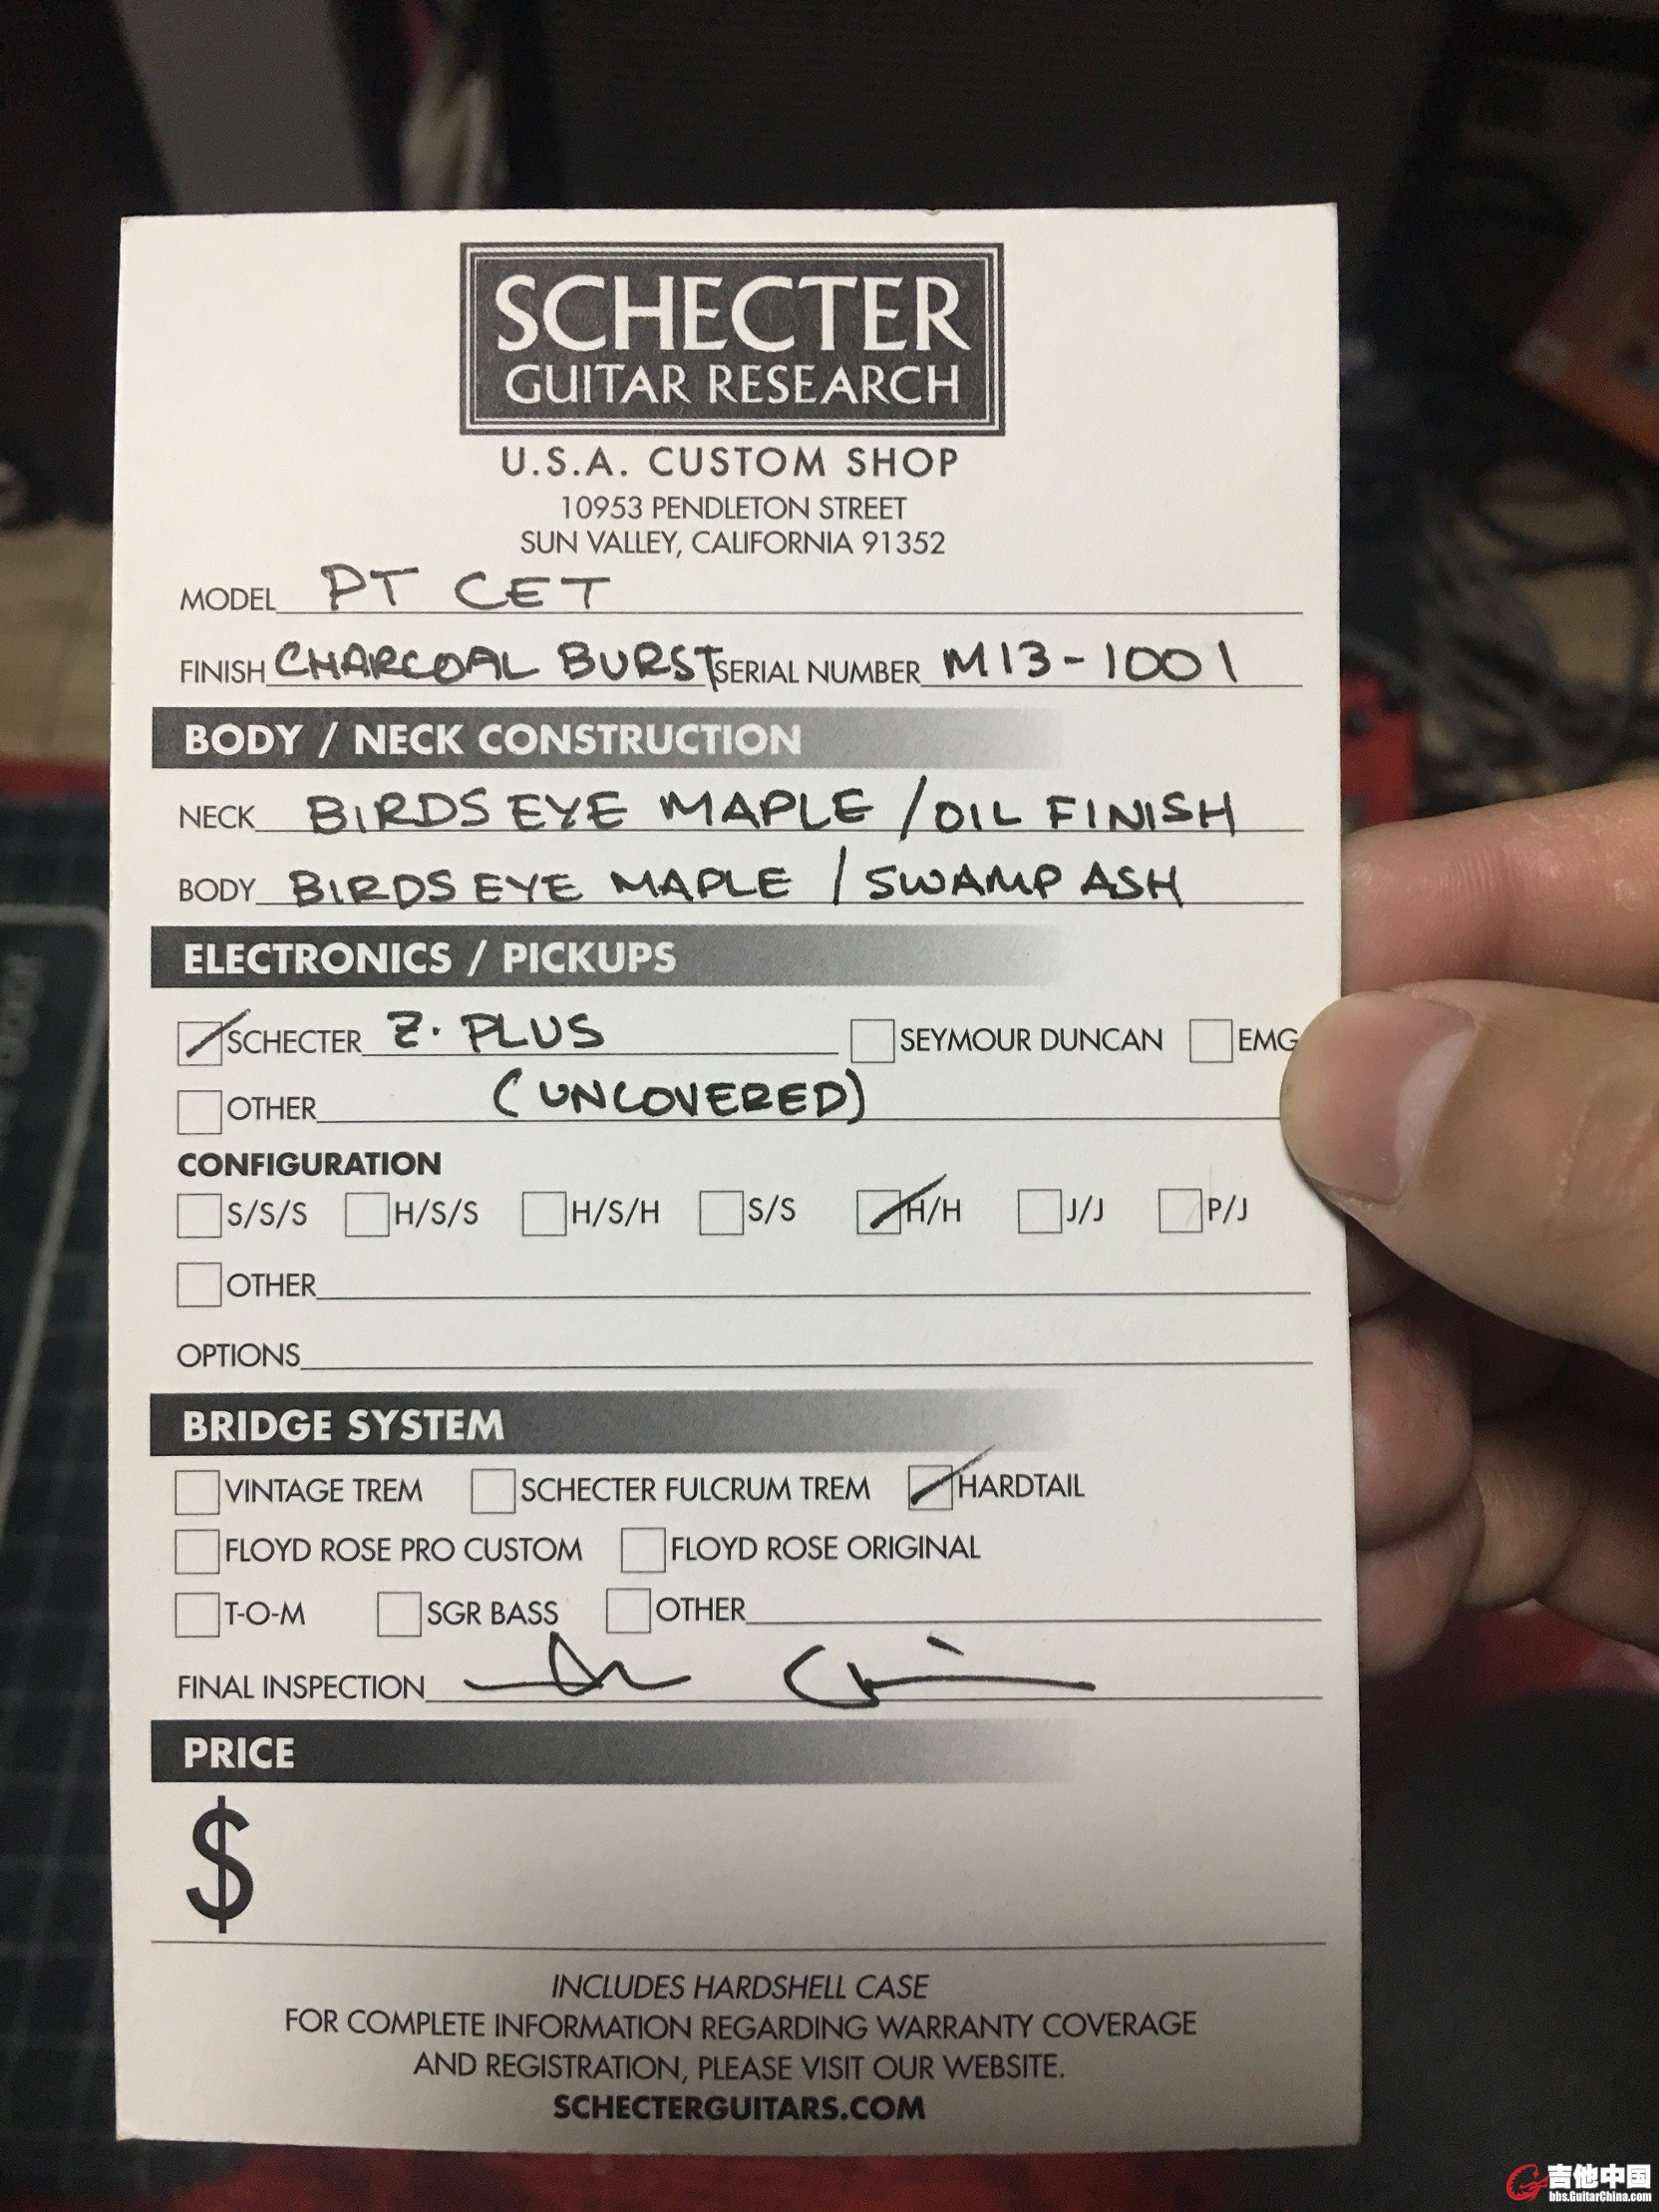 SCHECTER
GUITAR RESEARCH
U.S.A. CUSTOM SHOP
10953 PENDLETON STREET
SUN VALLEY, CALIFORNIA 91352
MODEL PT CET
FINISH CHARCOAL BURST SERIAL NUMBER M13-1001
BODY / NECK CONSTRUCTION
NECK BIRDSEYE MAPLE / OIL FINISH
BODY BIRDSEYE MAPLE / SWAMP ASH
ELECTRONICS / PICKUPS
SCHECTER Z. PLUS SEYMOUR DUNCAN EMG
OTHER (UNCOVERED)
CONFIGURATION
S/S/S H/S/S H/S/H S/S H/H J/J P/J
OTHER
OPTIONS
BRIDGE SYSTEM
VINTAGE TREM SCHECTER FULCRUM TREM HARDTAIL
FLOYD ROSE PRO CUSTOM FLOYD ROSE ORIGINAL
T-O-M SGR BASS OTHER
FINAL INSPECTION
PRICE
$
INCLUDES HARDSHELL CASE
FOR COMPLETE INFORMATION REGARDING WARRANTY COVERAGE
AND REGISTRATION, PLEASE VISIT OUR WEBSITE.
SCHECTERGUITARS.COM
吉他中国
bbs.GuitarChina.com